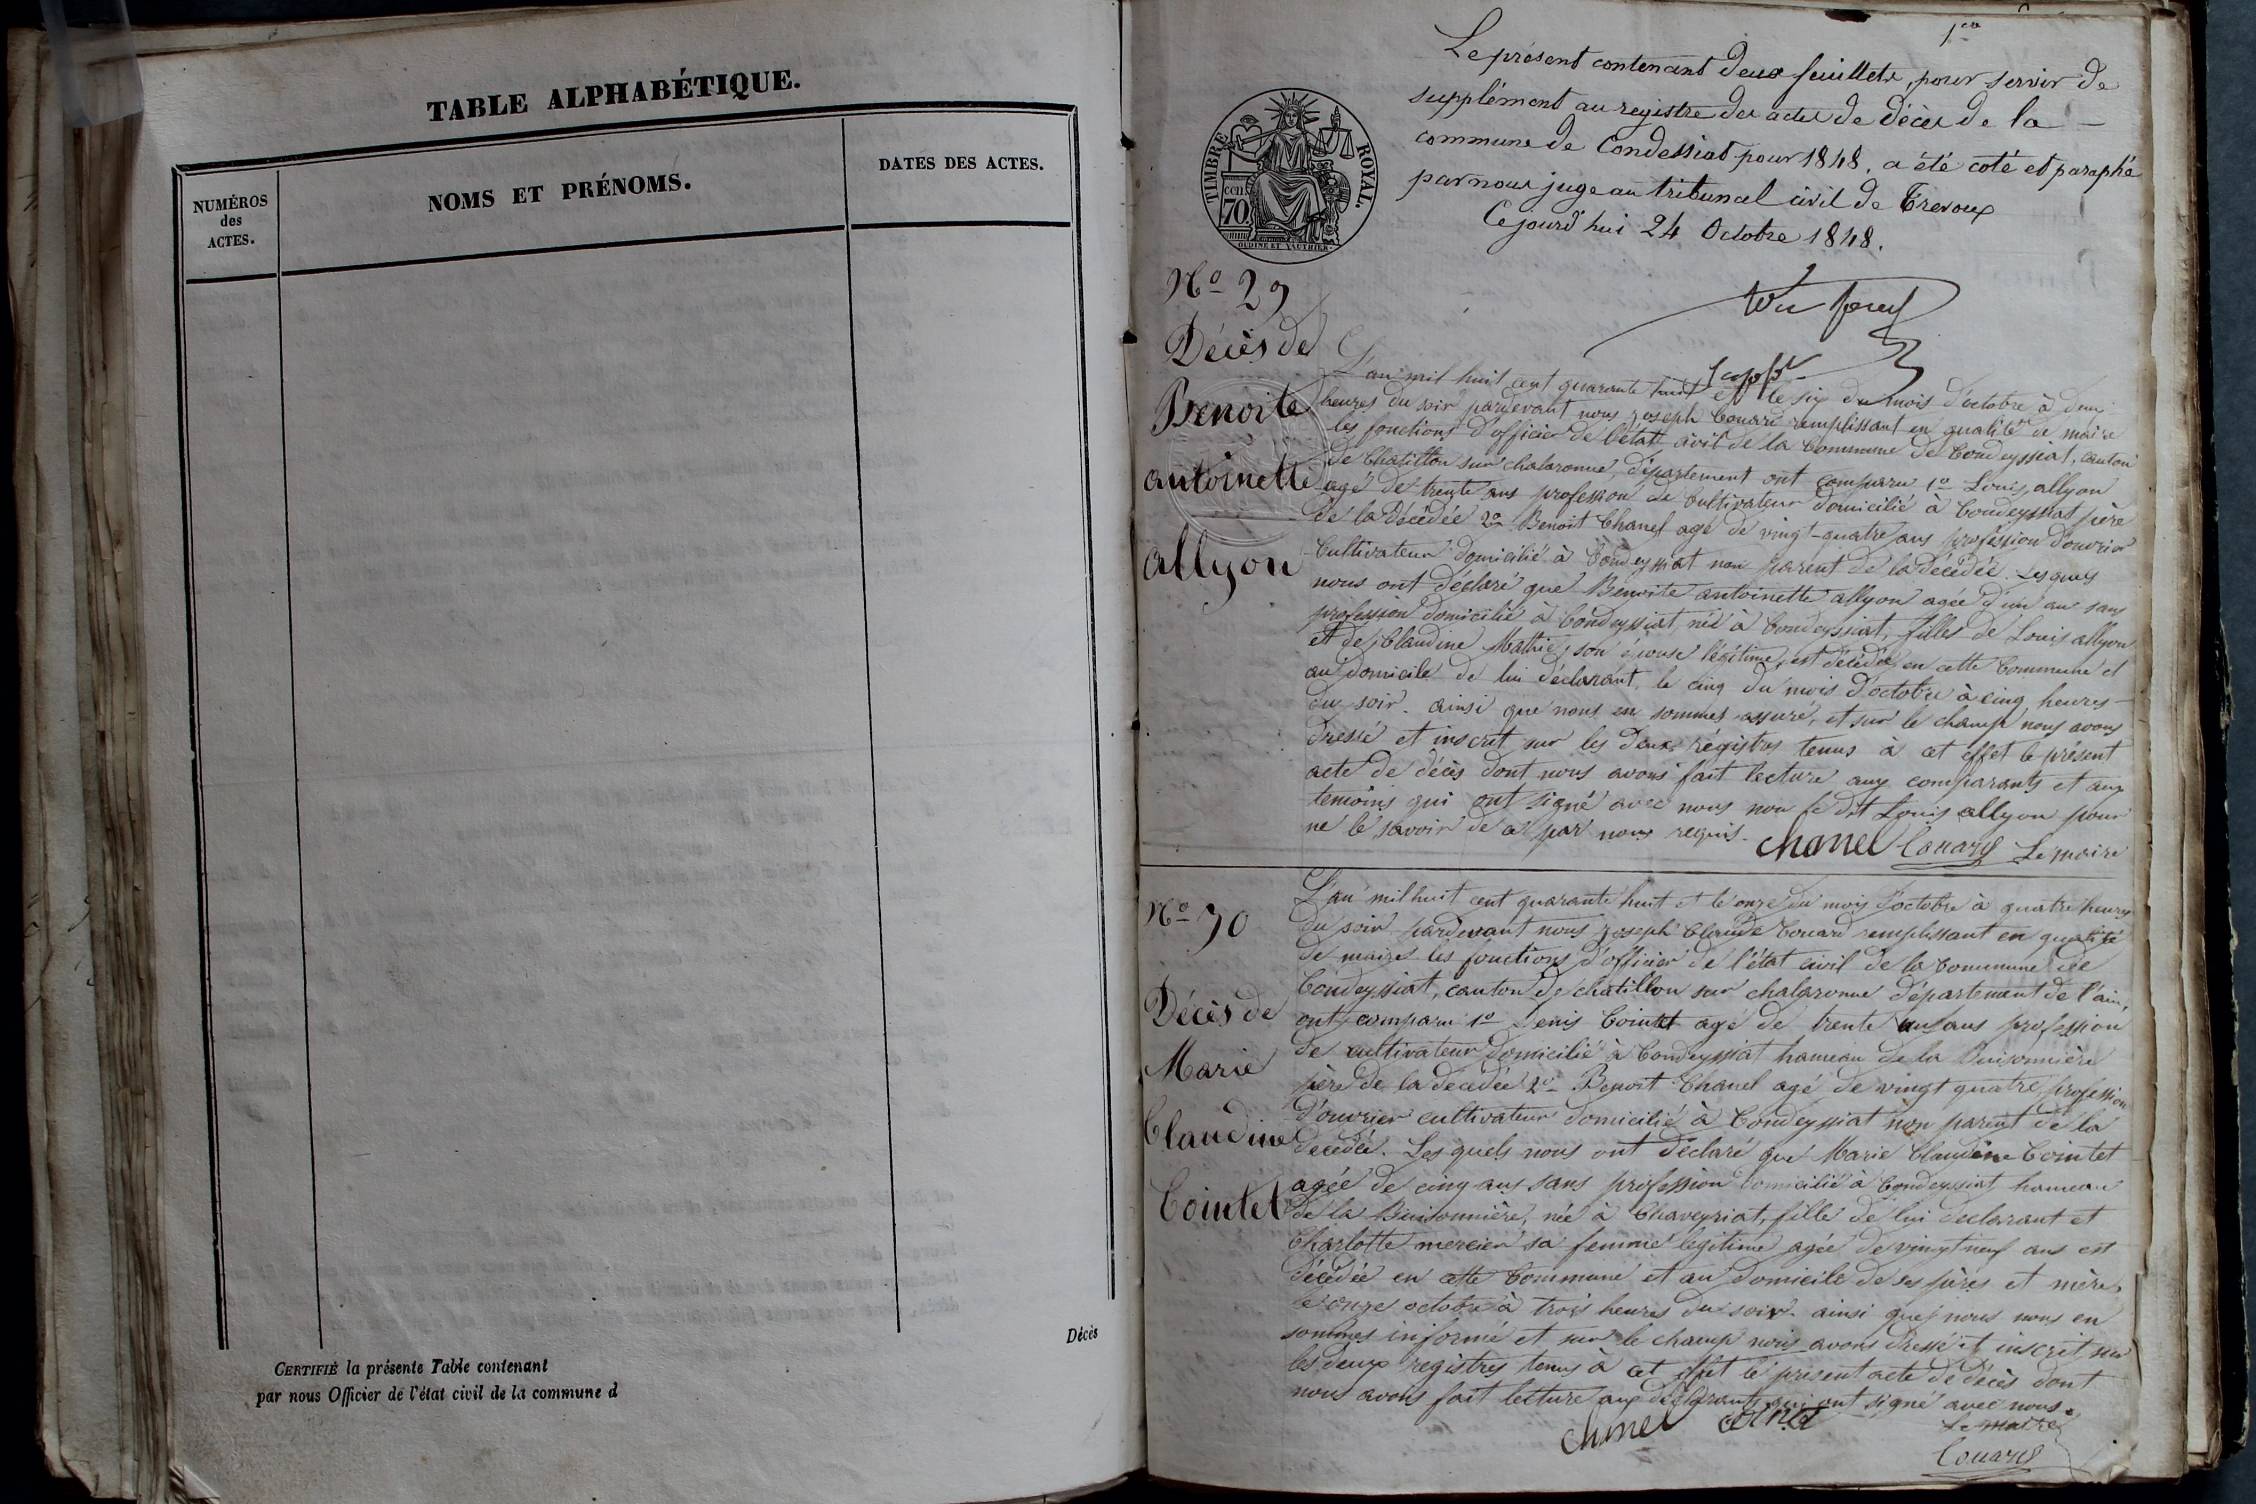 TABLE ALPHABÉTIQUE.
NUMÉROS
des
ACTES.
NOMS ET PRÉNOMS.
DATES DES ACTES.
Décès
CERTIFIÉ la présente Table contenant
par nous Officier de l'état civil de la commune d
Le présent contenant deux feuillets, pour servir de
supplément au registre des actes de décès de la
commune de Condessiat pour 1848. a été coté et paraphé
par nous juge au tribunal civil de Trevoux
Cejourd'hui 24 Octobre 1848.
TIMBRE ROYAL.
CEN
70
OUDINE ET VAUTHIER
No 29
Décès de
Benoite
antoinette
allyon
L'an mil huit cent quarante huit et le six du mois d'octobre à deux
heures du soir pardevant nous joseph Couard remplissant en qualité de maire
les fonctions d'officier de l'état civil de la Commune de Condeyssiat, canton
de Chatillon sur chalaronne, département ont comparu 1o Louis allyon
agé de trente ans profession de Cultivateur domicilié à Condeyssiat père
de la décédée 2o Benoit Chanel agé de vingt-quatre ans profession d'ouvrier
Cultivateur domicilié à Condeyssiat non parent de la décédée. Lesquels
nous ont déclaré que Benoite antoinette allyon agée d'un an sans
profession domicilié à Condeyssiat née à Condeyssiat, filles de Louis allyon
et de Claudine Mathie, son épouse légitime, est décédée en cette Commune et
au domicile de lui déclarant, le cinq du mois d'octobre à cinq heures
du soir. ainsi que nous en sommes assuré, et sur le champ nous avons
dressé et inscrit sur les deux régistres tenus à cet effet le présent
acte de décès dont nous avons fait lecture aux comparants et aux
temoins qui ont signé avec nous non le dit Louis allyon pour
ne le savoir de ce par nous requis.
chanel Couard Le maire
No 30
Décès de
Marie
Claudine
Cointet
L'an mil huit cent quarante huit et le onze du mois d'octobre à quatre heures
du soir pardevant nous joseph Claude Couard remplissant en qualité
de maire les fonctions d'officier de l'état civil de la Commune de
Condeyssiat, canton de chatillon sur chalaronne département de l'ain,
ont comparu 1o Denis Cointet agé de trente un ans profession
de cultivateur domicilié à Condeyssiat hameau de la Buisonnière
père de la décédée 2o Benoit Chanel agé de vingt quatre profession
d'ouvrier cultivateur domicilié à Condeyssiat non parent de la
décédée. Lesquels nous ont déclaré que Marie Claudine Cointet
agée de cinq ans sans profession domicilié à Condeyssiat hameau
de la Buisonnière, née à Chaveyriat, fille de lui declarant et
Charlotte mercier sa femme légitime agée de vingt neuf ans est
décédée en cette Commune et au domicile de ses pères et mère,
le onze octobre à trois heures du soir. ainsi que nous nous en
sommes informé et sur le champ nous avons dressé et inscrit sur
les deux registres tenus à cet effet le present acte de décès dont
nous avons fait lecture aux déclarants qui ont signé avec nous.
chanel Le maire
Couard